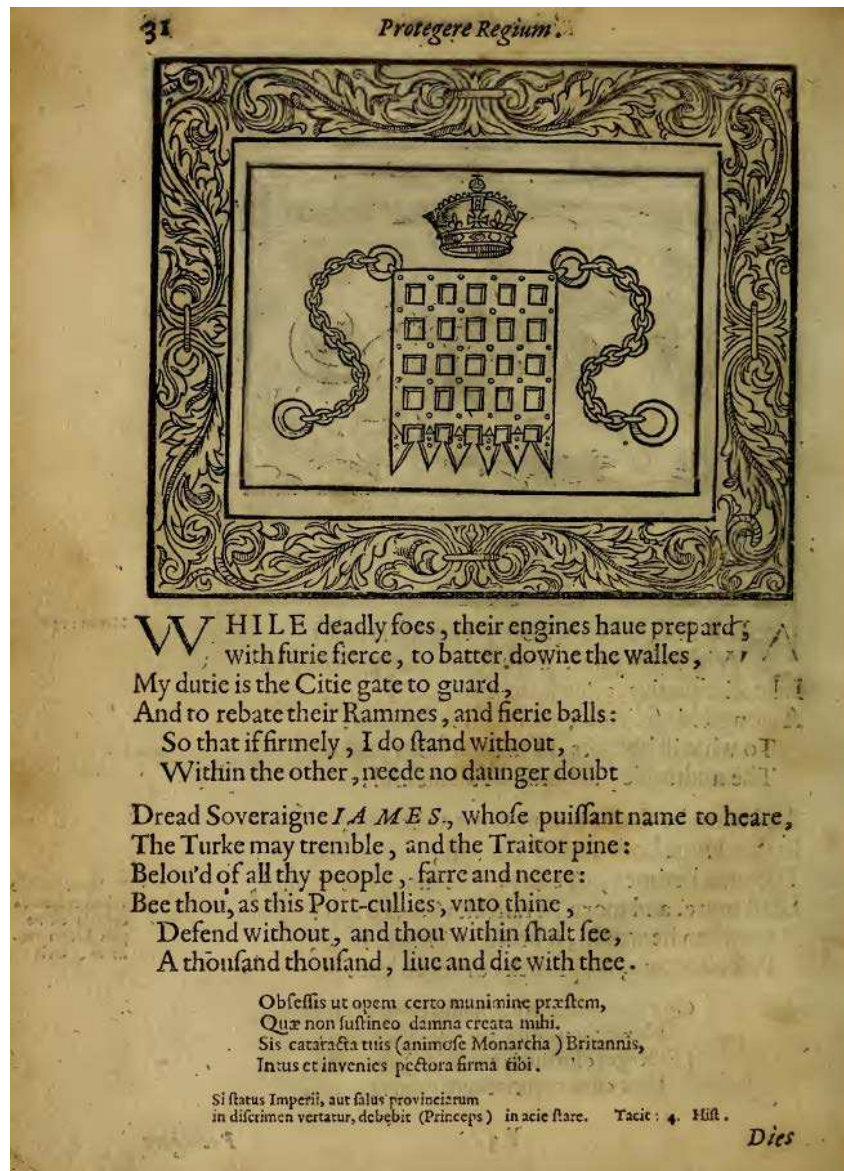 31 Protegere Regium.
WHILE deadly foes, their engines haue prepard,
with furie fierce, to batter downe the walles,
My dutie is the Citie gate to guard,
And to rebate their Rammes, and fierie balls:
So that if firmely, I do ſtand without,
Within the other, neede no daunger doubt
Dread Soveraigne IAMES, whoſe puiſſant name to heare,
The Turke may tremble, and the Traitor pine:
Belou'd of all thy people, farre and neere:
Bee thou, as this Port-cullies, vnto thine,
Defend without, and thou within ſhalt ſee,
A thouſand thouſand, liue and die with thee.
Obſeſſis ut opem certo munimine præſtem,
Quæ non ſuſtineo damna creata mihi.
Sis cataracta tuis (animoſe Monarcha) Britannis,
Intus et invenies pectora firma tibi.
Si ſtatus Imperii, aut ſalus provinciarum
in diſcrimen vertatur, debebit (Princeps) in acie ſtare. Tacit: 4. Hiſt.
Dies